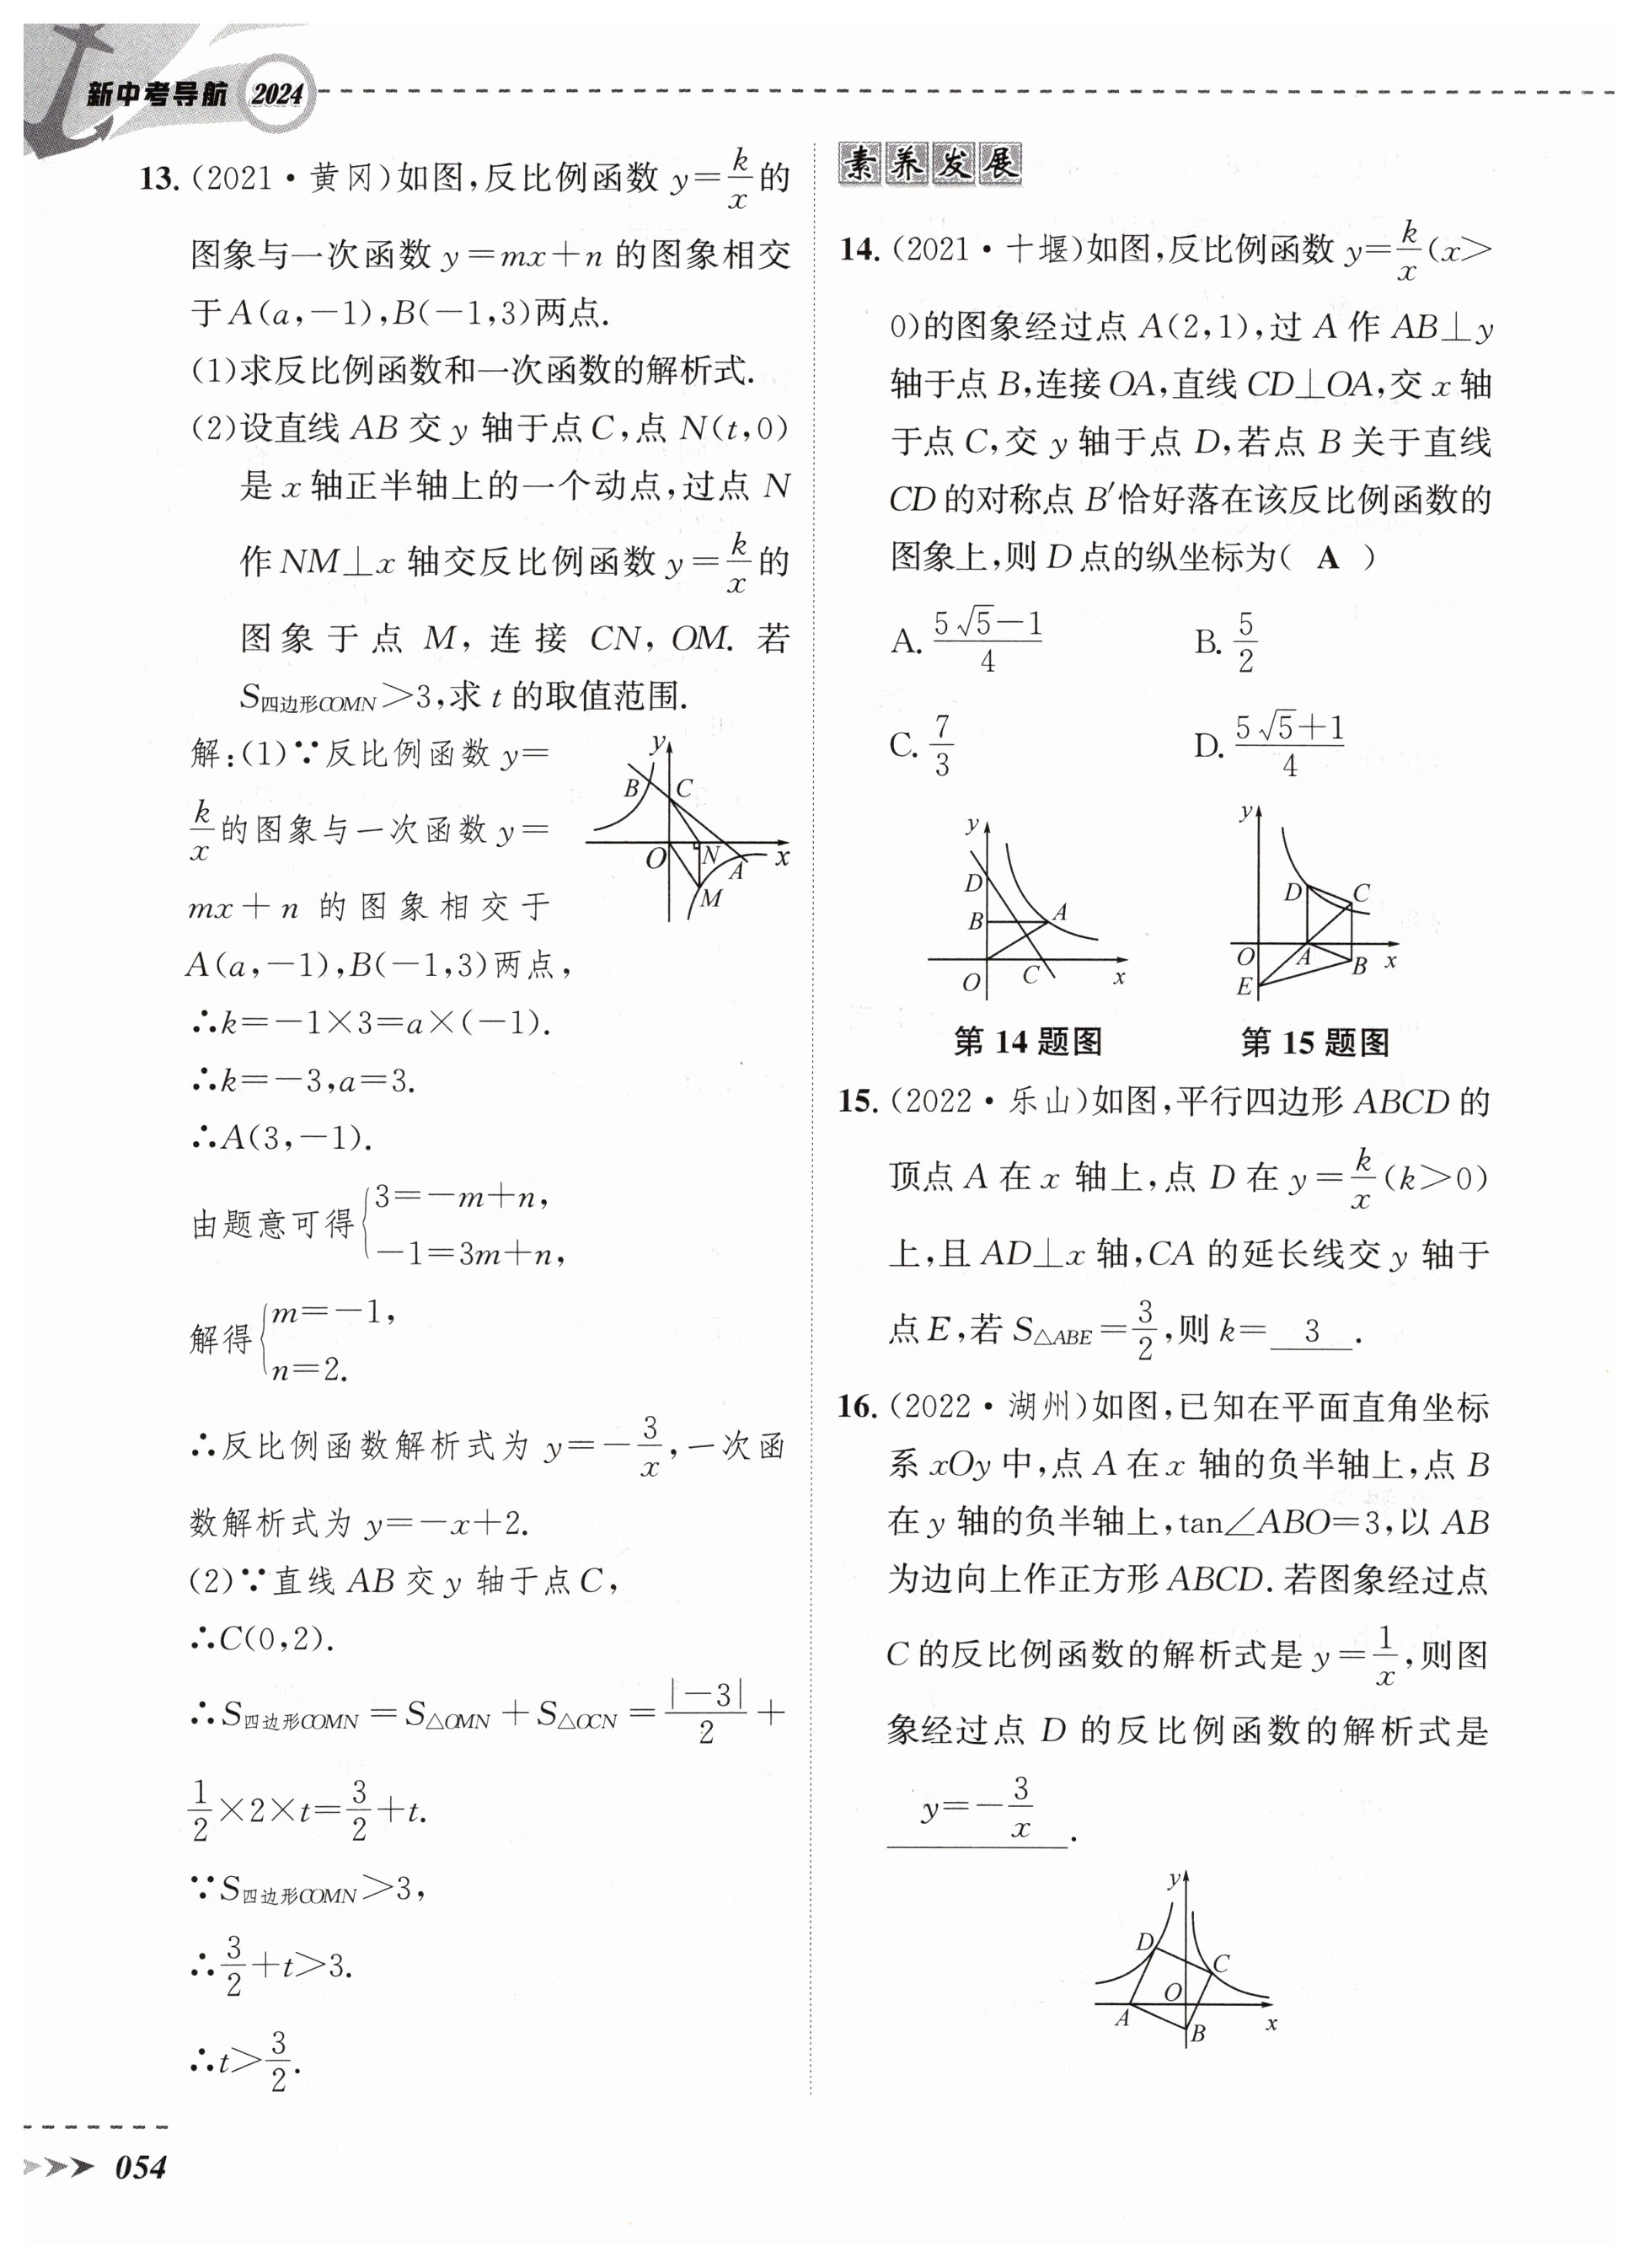 新中考导航 2024
13.(2021·黄冈)如图,反比例函数 y=k/x 的
图象与一次函数 y=mx+n 的图象相交
于A(a,-1),B(-1,3)两点.
(1)求反比例函数和一次函数的解析式.
(2)设直线 AB 交 y 轴于点C,点 N(t,0)
是 x 轴正半轴上的一个动点,过点 N
作NM⊥x 轴交反比例函数 y=k/x 的
图象于点 M,连接 CN,OM.若
S四边形COMN>3,求 t 的取值范围.
解:(1)∵反比例函数 y=
k/x 的图象与一次函数 y=
mx+n 的图象相交于
A(a,-1),B(-1,3)两点,
∴k=-1×3=a×(-1).
∴k=-3,a=3.
∴A(3,-1).
由题意可得{3=-m+n,
-1=3m+n,
解得{m=-1,
n=2.
∴反比例函数解析式为 y=-3/x,一次函
数解析式为 y=-x+2.
(2)∵直线 AB 交 y 轴于点C,
∴C(0,2).
∴S四边形COMN=S△OMN+S△OCN=|-3|/2+
1/2×2×t=3/2+t.
∵S四边形COMN>3,
∴3/2+t>3.
∴t>3/2.
y
B
C
O
N
A
x
M
054
素养发展
14.(2021·十堰)如图,反比例函数 y=k/x(x>
0)的图象经过点 A(2,1),过 A 作 AB⊥y
轴于点 B,连接OA,直线CD⊥OA,交 x 轴
于点 C,交 y 轴于点 D,若点 B 关于直线
CD的对称点 B′恰好落在该反比例函数的
图象上,则 D 点的纵坐标为( A )
A. (5√5-1)/4 B. 5/2
C. 7/3 D. (5√5+1)/4
y
D
B
A
O
C
x
y
D
C
O
A
B
x
E
第 14 题图 第 15 题图
15.(2022·乐山)如图,平行四边形 ABCD 的
顶点 A 在 x 轴上,点 D 在 y=k/x(k>0)
上,且 AD⊥x 轴,CA 的延长线交 y 轴于
点E,若 S△ABE=3/2,则 k= 3 .
16.(2022·湖州)如图,已知在平面直角坐标
系 xOy 中,点 A 在 x 轴的负半轴上,点 B
在 y 轴的负半轴上,tan∠ABO=3,以 AB
为边向上作正方形 ABCD.若图象经过点
C 的反比例函数的解析式是 y=1/x,则图
象经过点 D 的反比例函数的解析式是
y=-3/x .
y
D
C
O
A
B
x